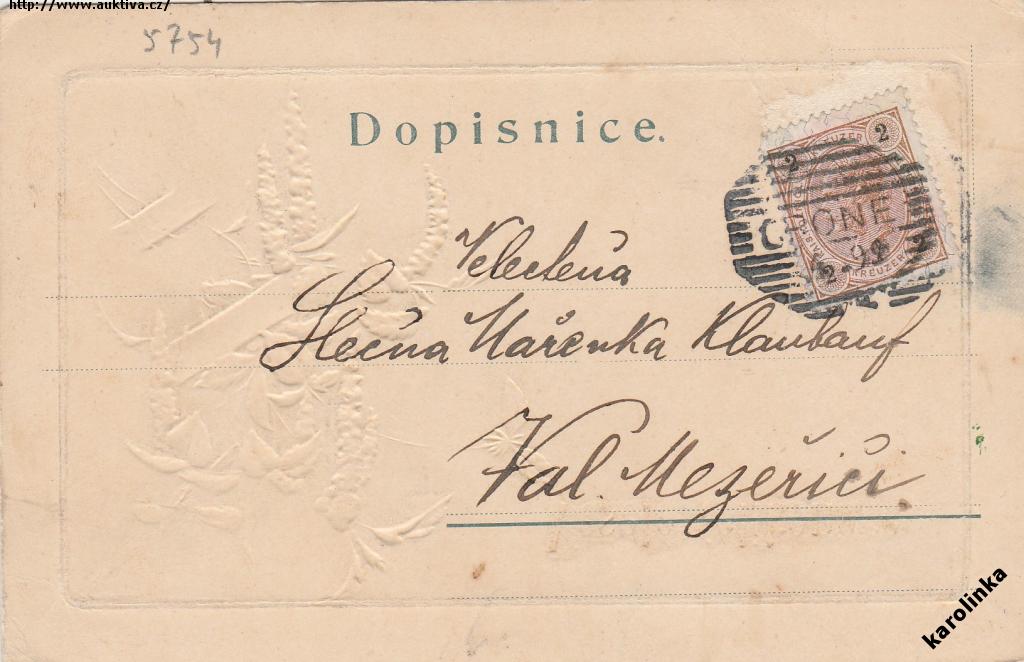 http://www.auktiva.cz/
5754
Dopisnice.
2 KREUZER 2
ONE
2 KREUZER 2
Velectěná
Slečna Mařenka Klaubauf
Val. Mezeřičí
karolinka